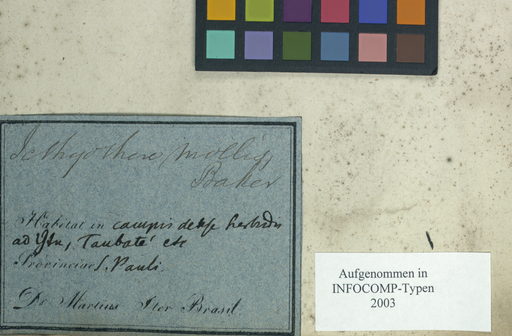 Icthyothere mollis,
Baker
Habitat in campis herbidis
ad Ytu, Taubaté etc
Provinciae S. Pauli.
Dr. Martius Iter Brasil.
Aufgenommen in
INFOCOMP-Typen
2003